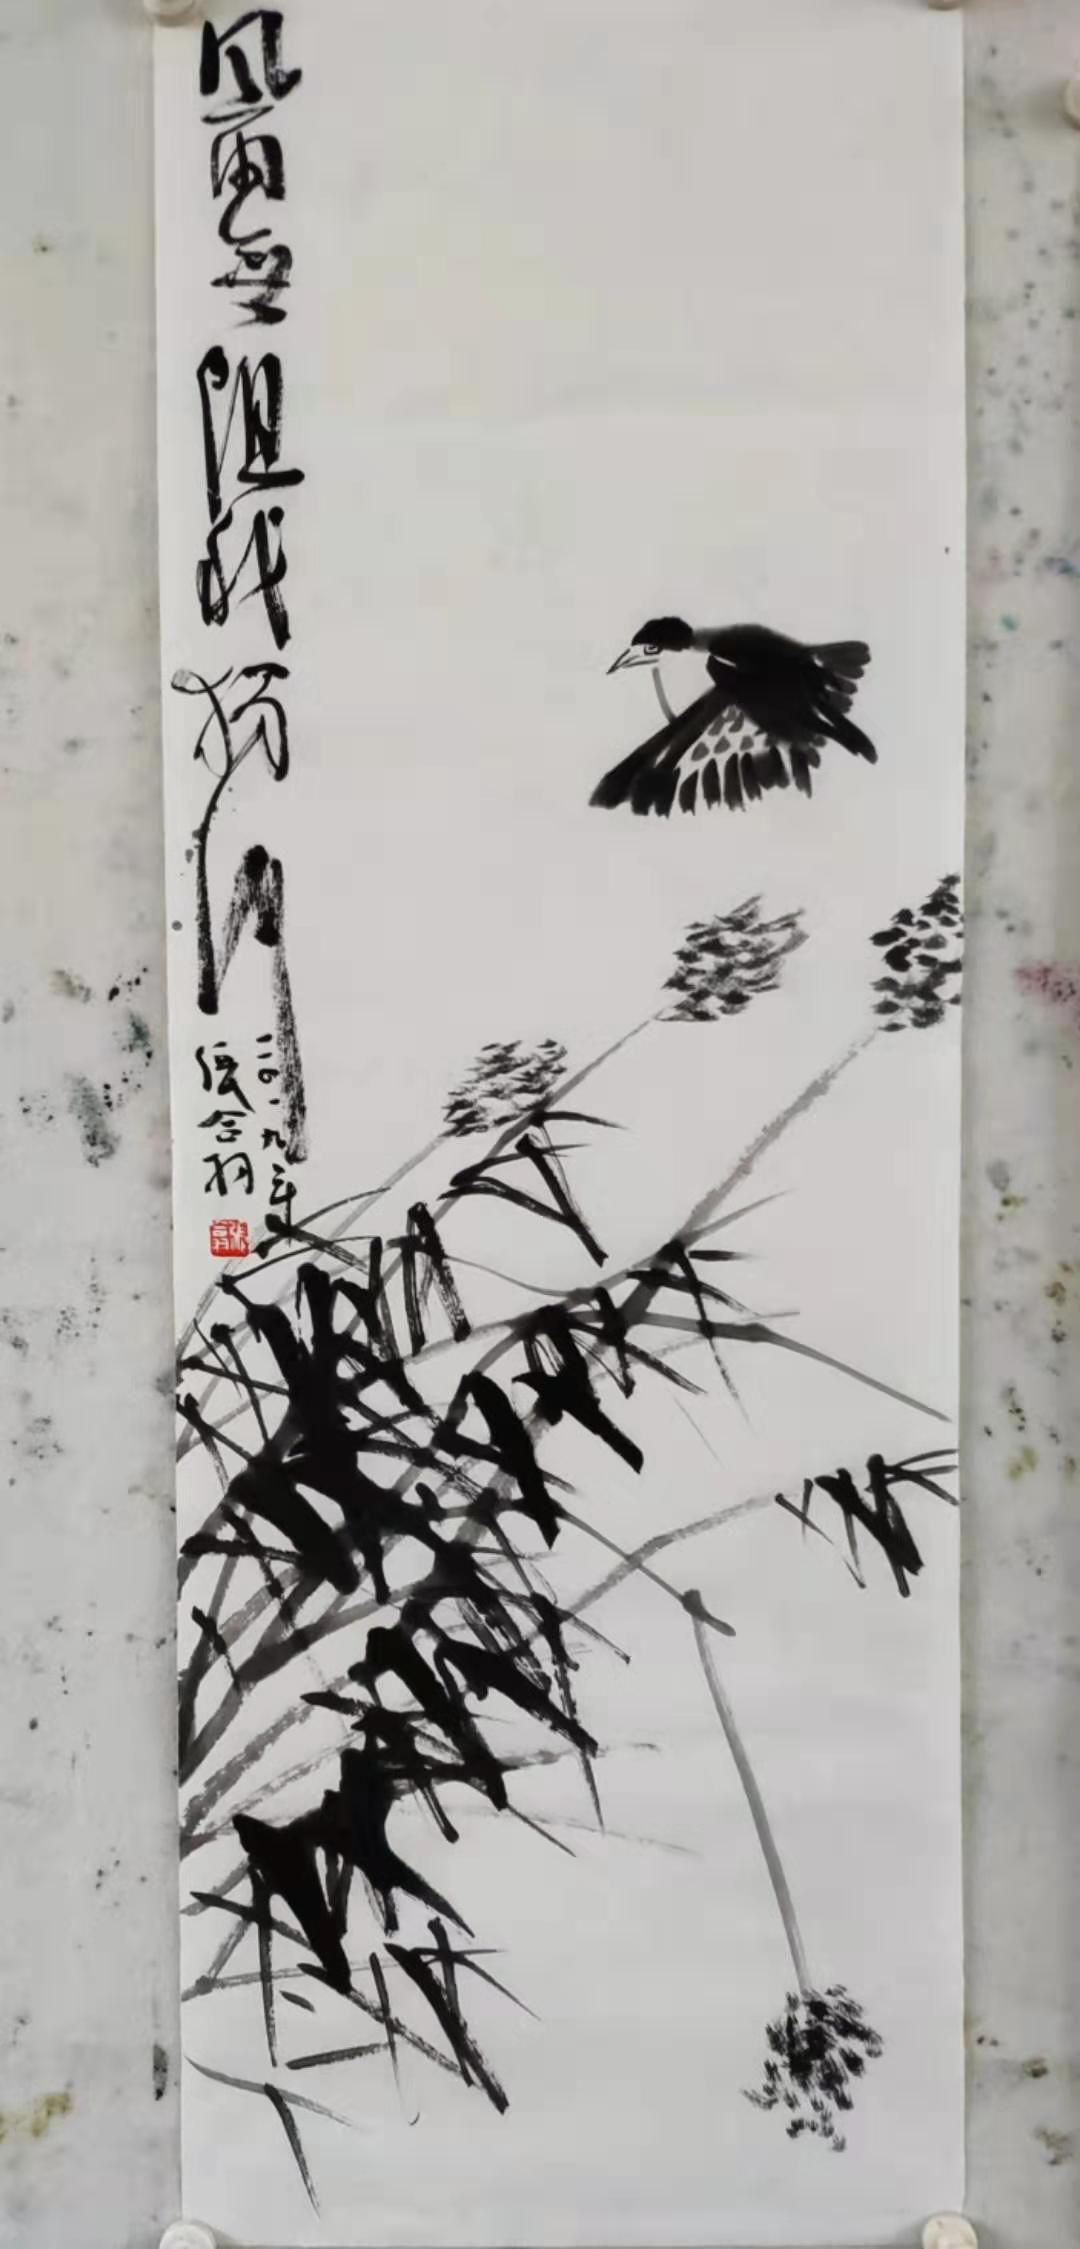 风雨无阻我独行
二〇一九年
张合羽